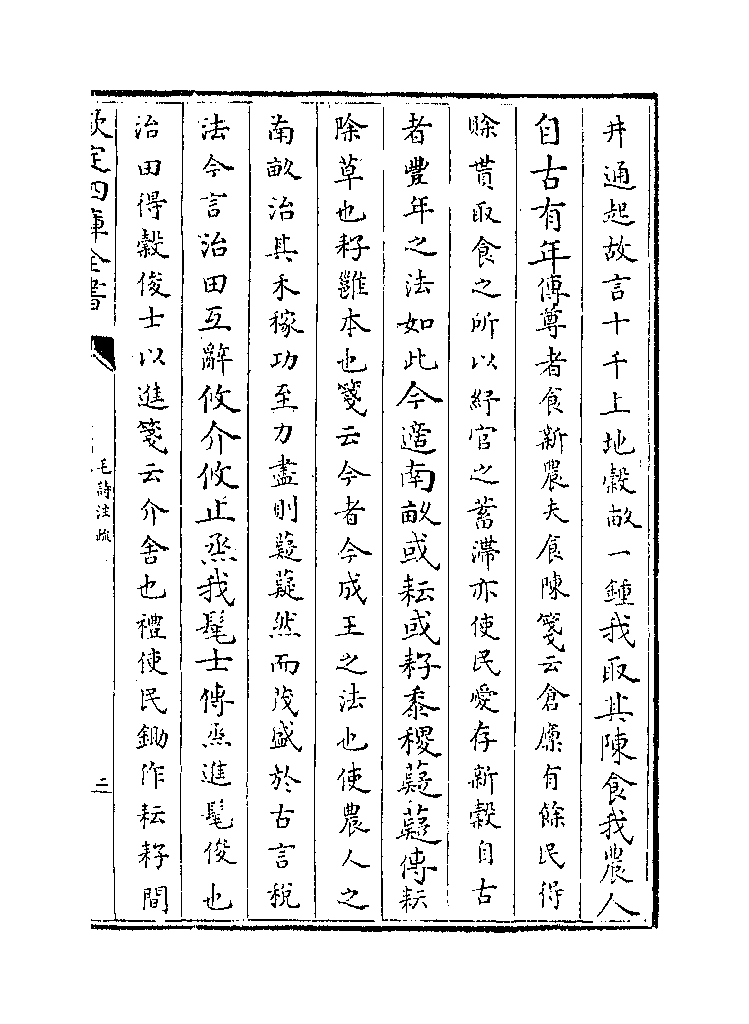 井通起故言十千上地穀畝一鍾我取其陳食我農人
自古有年傳尊者食新農夫食陳箋云倉廩有餘民得
賖貰取食之所以紓官之蓄滯亦使民愛存新穀自古
者豐年之法如此今適南畝或耘或耔黍稷薿薿傳耘
除草也耔雝本也箋云今者今成王之法也使農人之
南畝治其禾稼功至力盡則薿薿然而茂盛於古言稅
法今言治田互辭攸介攸止烝我髦士傳烝進髦俊也
治田得穀俊士以進箋云介舍也禮使民鋤作耘耔間
欽定四庫全書
毛詩注疏
三